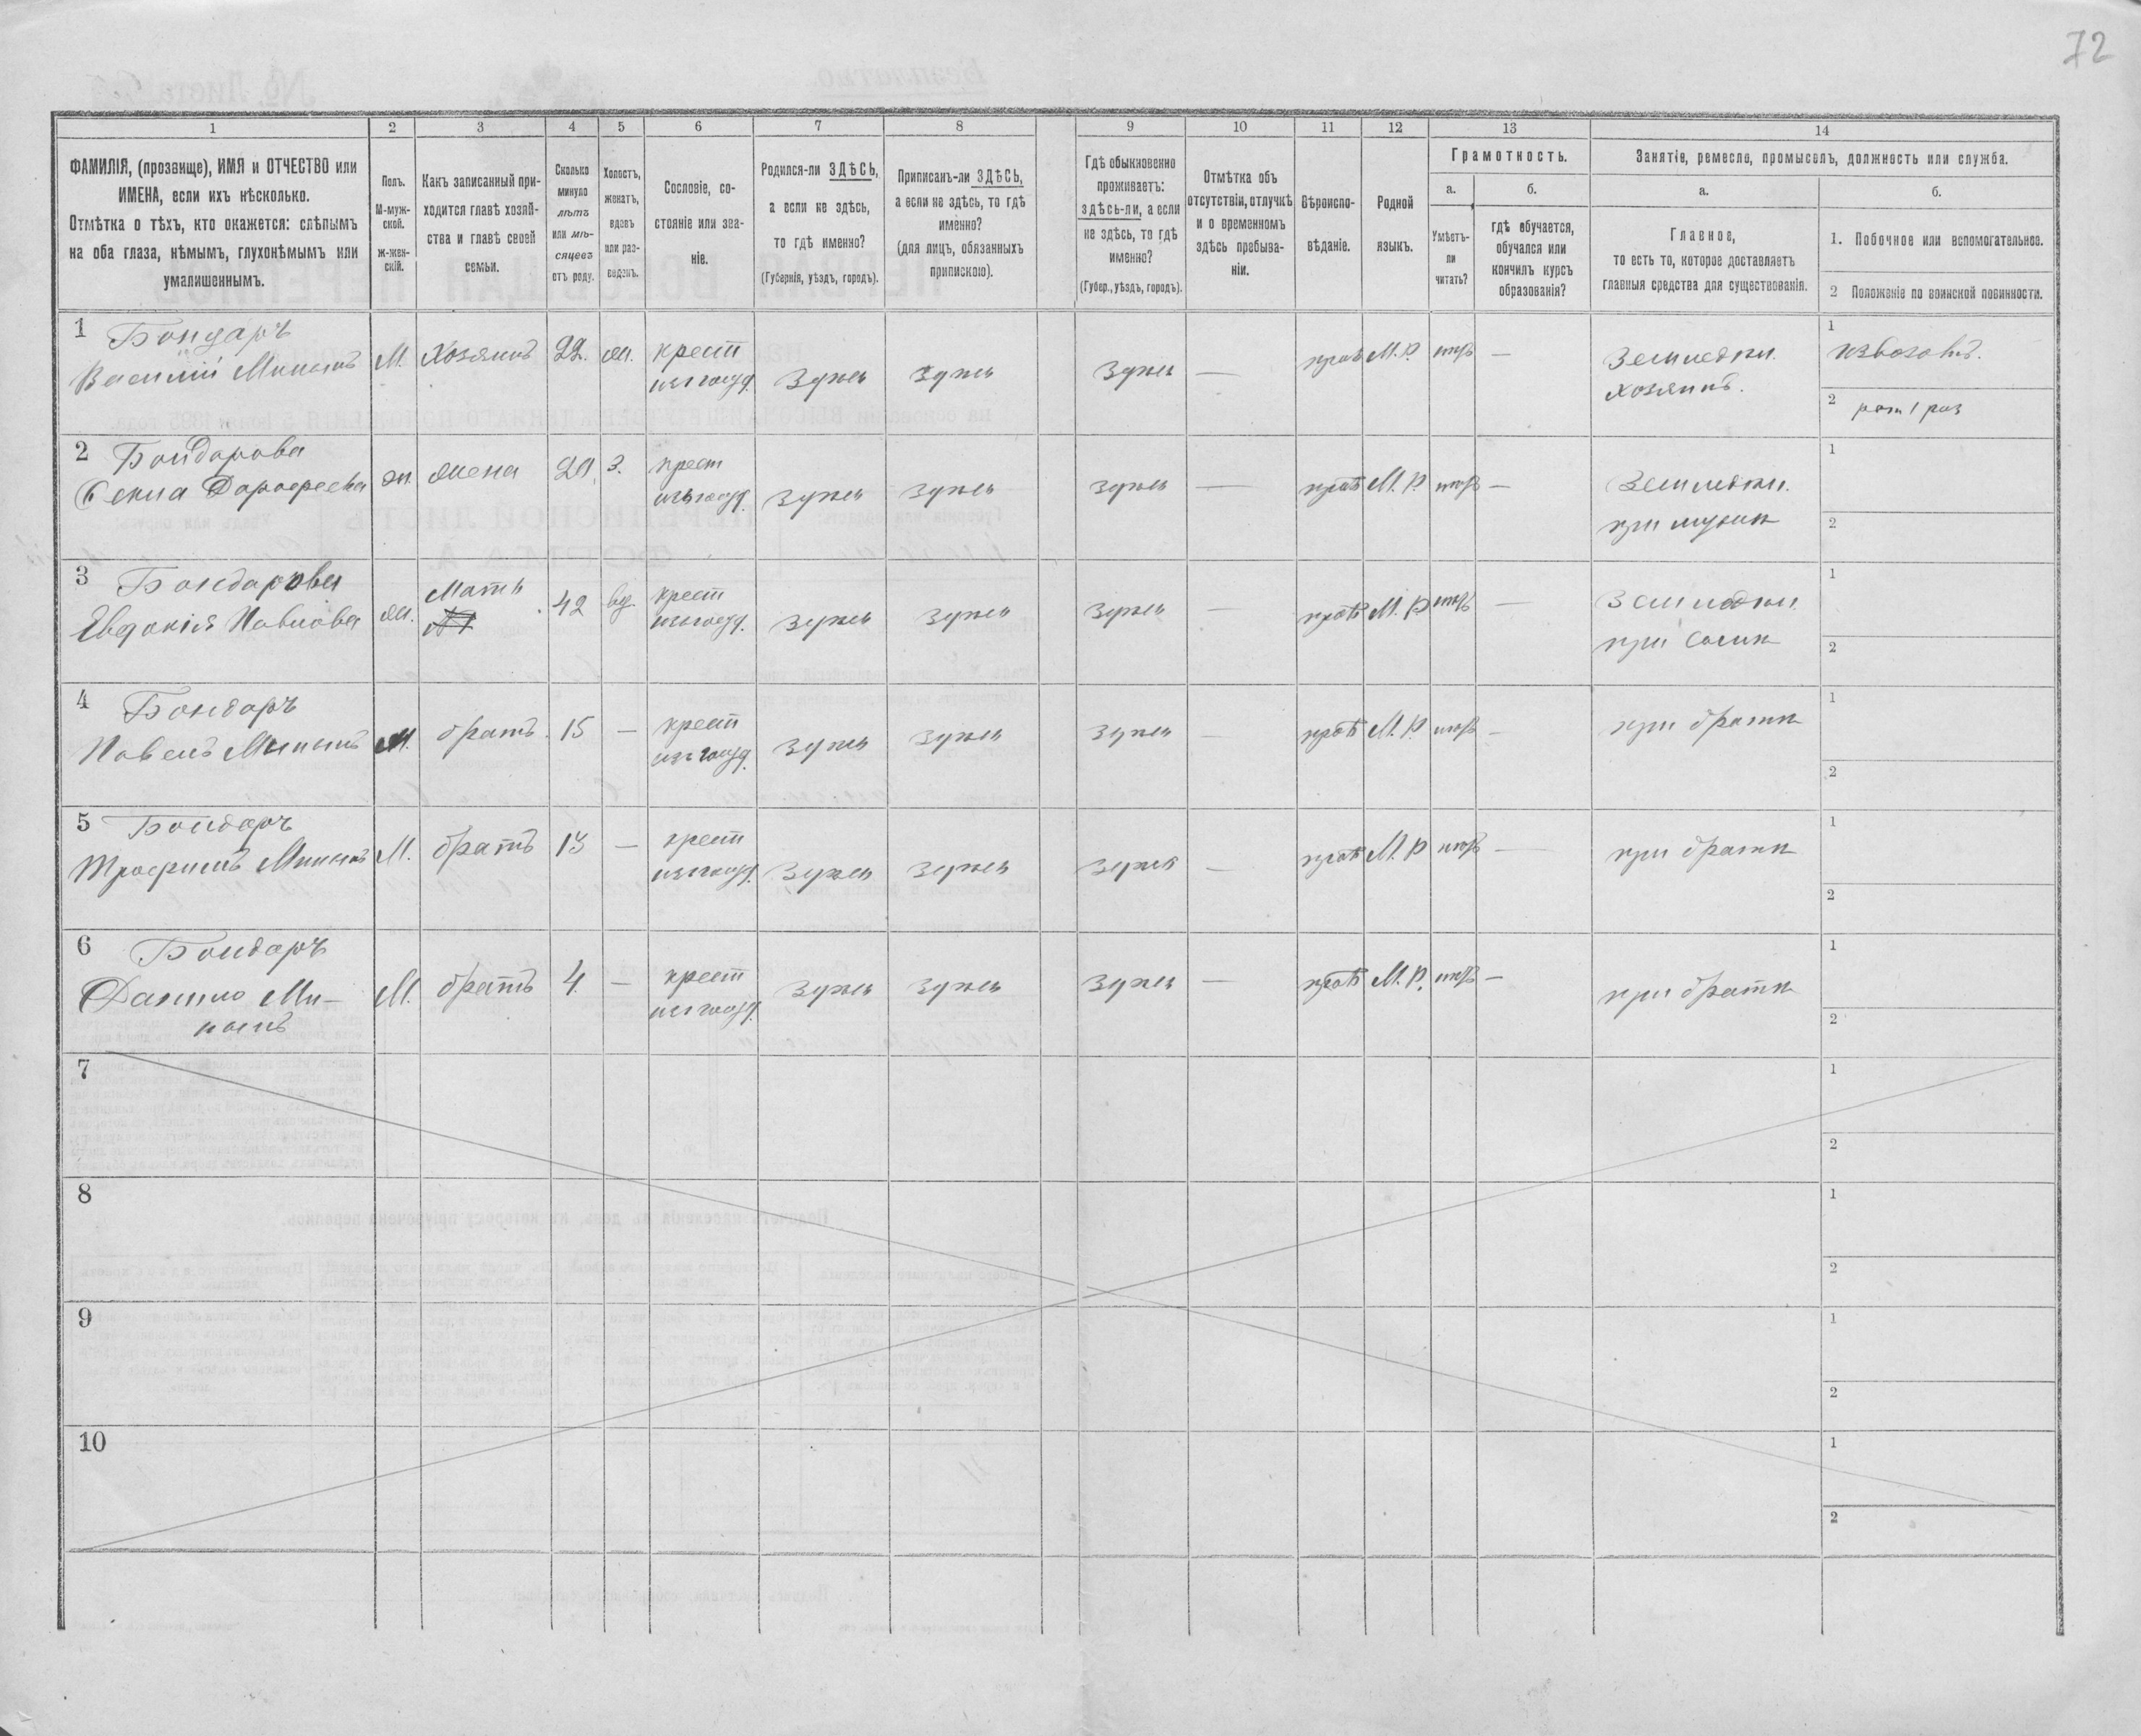 72
1
2
3
4
5
6
7
8
9
10
11
12
13
14
ФАМИЛІЯ, (прозвище), ИМЯ и ОТЧЕСТВО или
ИМЕНА, если ихъ нѣсколько.
Отмѣтка о тѣхъ, кто окажется: слѣпымъ
на оба глаза, нѣмымъ, глухонѣмымъ или
умалишеннымъ.
Полъ.
М-муж-
ской.
Ж-жен-
скій.
Какъ записанный при-
ходится главѣ хозяй-
ства и главѣ своей
семьи.
Сколько
минуло
лѣтъ
или мѣ-
сяцевъ
отъ роду.
Холостъ,
женатъ,
вдовъ
или раз-
веденъ.
Сословіе, со-
стояніе или зва-
ніе.
Родился-ли ЗДѢСЬ,
а если не здѣсь,
то гдѣ именно?
(Губернія, уѣздъ, городъ).
Приписанъ-ли ЗДѢСЬ,
а если не здѣсь, то гдѣ
именно?
(для лицъ, обязанныхъ
припискою).
Гдѣ обыкновенно
проживаетъ:
здѣсь-ли, а если
не здѣсь, то гдѣ
именно?
(Губер., уѣздъ, городъ).
Отмѣтка объ
отсутствіи, отлучкѣ
и о временномъ
здѣсь пребыва-
ніи.
Вѣроиспо-
вѣданіе.
Родной
языкъ.
Грамотность.
а.
б.
Умѣетъ-
ли
читать?
гдѣ обучается,
обучался или
кончилъ курсъ
образованія?
Занятіе, ремесло, промыселъ, должность или служба.
а.
б.
Главное,
то есть то, которое доставляетъ
главныя средства для существованія.
1. Побочное или вспомогательное.
2 Положеніе по воинской повинности.
1 Бондарь
Василій Мининъ
М. Хозяинъ 22. жн.
крест
Здѣсь Здѣсь Здѣсь — прав М.Р. нѣтъ —
Землед
хозяинъ.
1 извозомъ.
2
2 Бондарова
Дорофеева
жн. жена 20, З.
крест
Здѣсь Здѣсь Здѣсь — прав М.Р. нѣтъ —
Землед
при мужѣ
1
2
3 Бондарова
Евдокія Павлова
жн. Мать 42 вд.
крест
Здѣсь Здѣсь Здѣсь — прав М.Р нѣтъ —
Землед
при сынѣ
1
2
4 Бондарь
Павелъ Мининъ
М. братъ 15 —
крест
Здѣсь Здѣсь Здѣсь — прав М.Р. нѣтъ —
при братѣ
1
2
5 Бондарь
Трофимъ Мининъ
М. братъ —
крест
Здѣсь Здѣсь Здѣсь — прав М.Р нѣтъ —
при братѣ
1
2
6 Бондарь
Данило Ми-
нинъ
М. братъ 4. —
крест
Здѣсь Здѣсь Здѣсь — прав М.Р. нѣтъ —
при братѣ
1
2
7
1
2
8
1
2
9
1
2
10
1
2